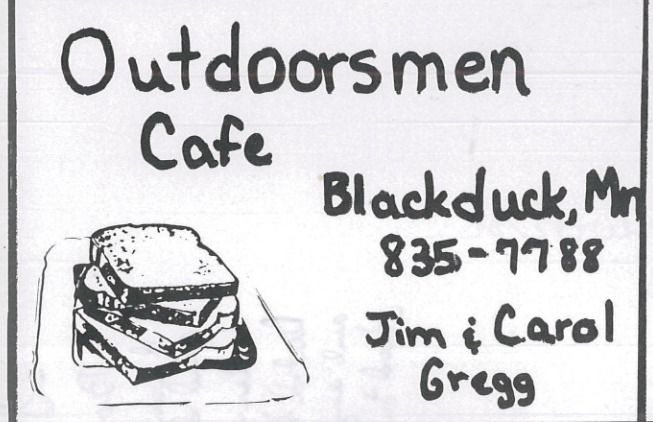 Outdoorsmen
Cafe
Blackduck, Mn
835-7788
Jim & Carol
Gregg